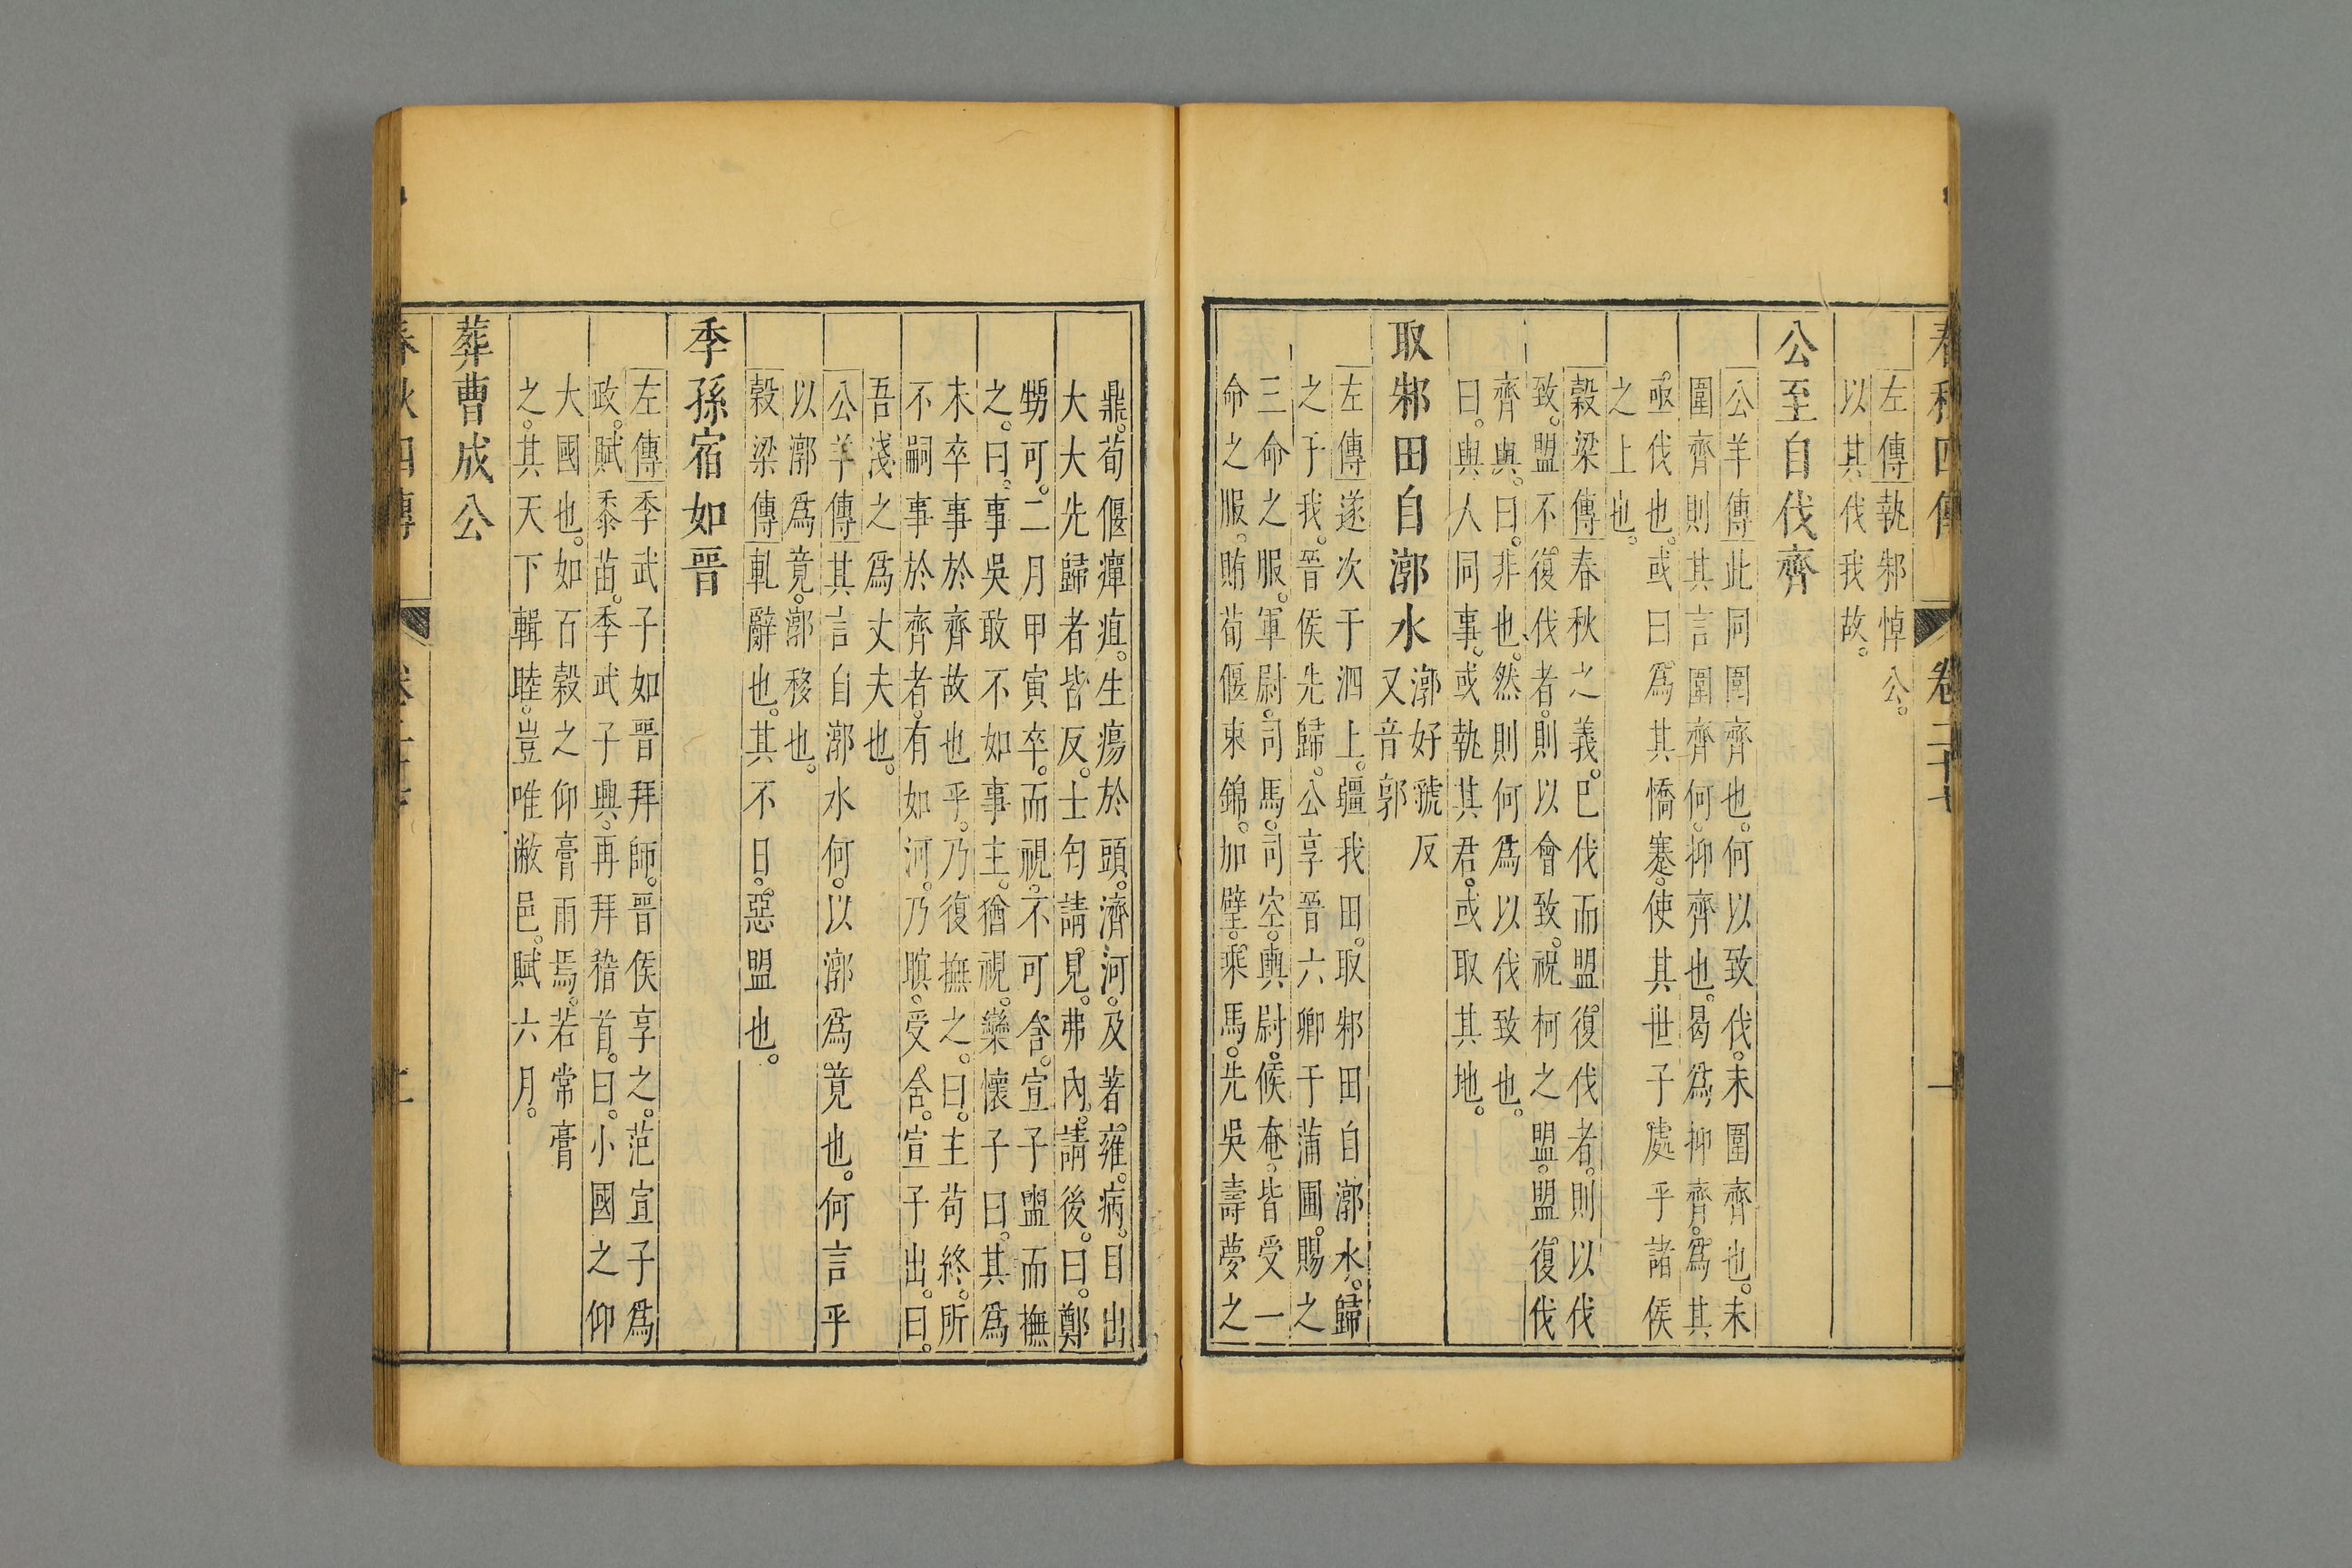 春秋四傳 卷二十七 一
左傳執邾悼公。
以其伐我故。
公至自伐齊
公羊傳此同圍齊也。何以致伐。未圍齊也。未
圍齊則其言圍齊何。抑齊也。曷爲抑齊。爲其
亟伐也。或曰爲其憍蹇。使其世子處乎諸侯
之上也。
穀梁傳春秋之義。已伐而盟復伐者。則以伐
致。盟不復伐者。則以會致。祝柯之盟。盟復伐
齊與。曰。非也。然則何爲以伐致也。
曰。與人同事。或執其君。或取其地。
取邾田自漷水漷好虢反
又音郭
左傳遂次于泗上。疆我田。取邾田自漷水。歸
之于我。晉侯先歸。公享晉六卿于蒲圃。賜之
三命之服。軍尉。司馬。司空。輿尉。候奄。皆受一
命之服。賄荀偃束錦。加璧。乘馬。先吳壽夢之
鼎。荀偃癉疽。生瘍於頭。濟河。及著雍。病。目出
大大先歸者皆反。士匄請見。弗內。請後。曰。鄭
甥可。二月甲寅卒。而視。不可含。宣子盥而撫
之。曰。事吳敢不如事主。猶視。欒懷子曰。其爲
未卒事於齊故也乎。乃復撫之。曰。主荀終。所
不嗣事於齊者。有如河。乃瞑。受含。宣子出。曰。
吾淺之爲丈夫也。
公羊傳其言自漷水何。以漷爲竟也。何言乎
以漷爲竟。漷移也。
穀梁傳軋辭也。其不日。惡盟也。
季孫宿如晉
左傳季武子如晉拜師。晉侯享之。范宣子爲
政。賦黍苗。季武子興。再拜稽首。曰。小國之仰
大國也。如百穀之仰膏雨焉。若常膏
之。其天下輯睦。豈唯敝邑。賦六月。
葬曹成公
春秋四傳 卷二十七 二